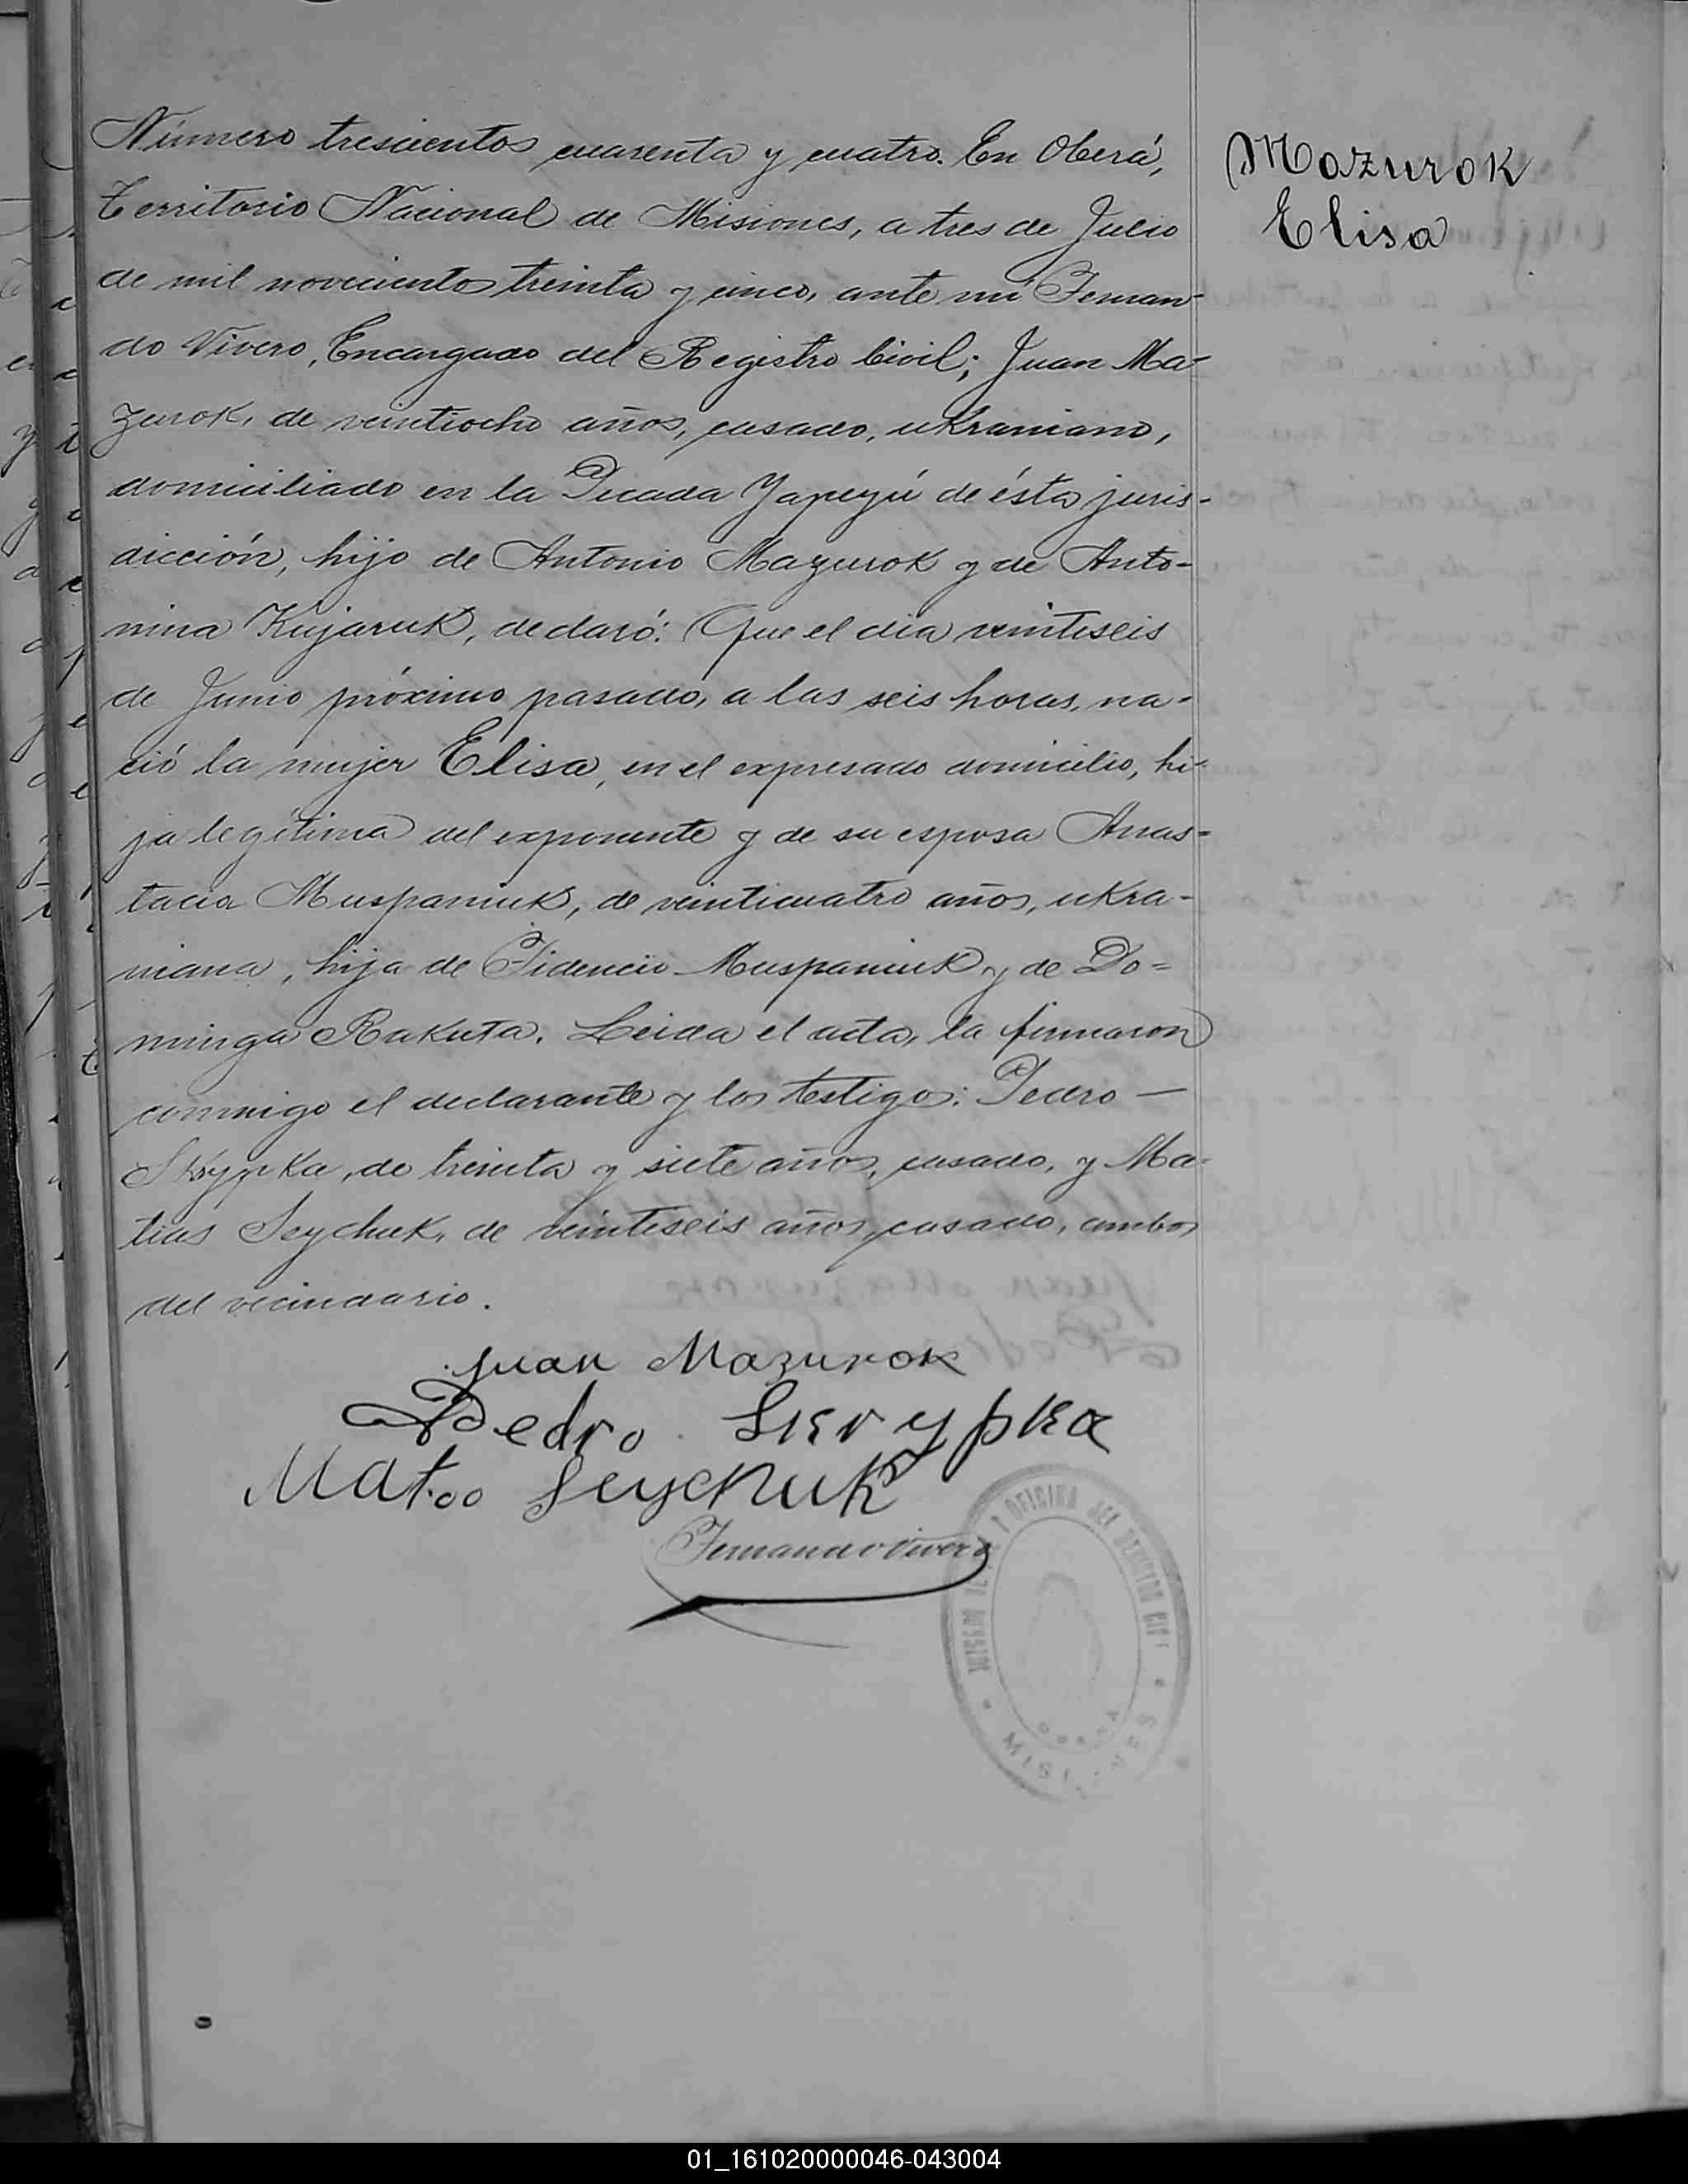 Número trescientos cuarenta y cuatro. En Oberá,
Territorio Nacional de Misiones, a tres de Julio
de mil novecientos treinta y cinco, ante mí Fernan-
do Vivero, Encargado del Registro Civil; Juan Ma-
zurok, de veintiocho años, casado, ukraniano,
domiciliado en la Picada Yapeyú de ésta juris-
dicción, hijo de Antonio Mazurok y de Anto-
nina Kujaruk, declaró: Que el día veintiseis
de Junio próximo pasado, a las seis horas, na-
ció la mujer Elisa, en el expresado domicilio, hi-
ja legítima del exponente y de su esposa Anas-
tacia Muspaniuk, de veinticuatro años, ukra-
niana, hija de Fidencio Muspaniuk y de Do=
minga Rakuta. Leida el acta, la firmaron
conmigo el declarante y los testigos: Pedro —
Skrypka, de treinta y siete años, casado, y Ma-
tias Seychuk, de veintiseis años, casado, ambos
del vecindario.
Juan Mazurok
Pedro Skrypka
Seychuk
Fernando Vivero
Mazurok
Elisa
OFICINA DEL REGISTRO CIVIL
OBERA
MISIONES
01_161020000046-043004